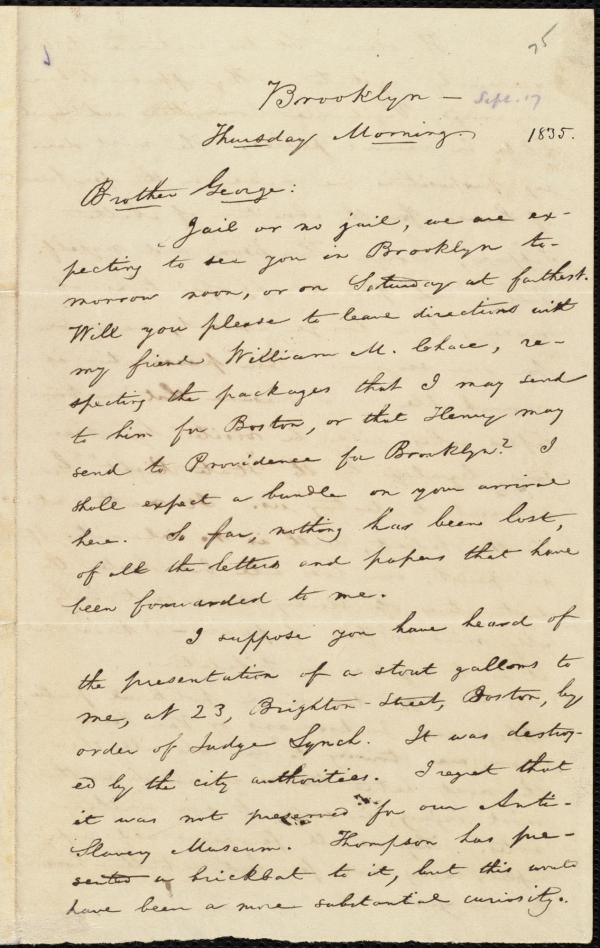 25
Brooklyn — Sept. 17
Thursday Morning. 1835.
Brother George:
Jail or no jail, we are ex-
pecting to see you in Brooklyn to-
morrow noon, or on Saturday at farthest.
Will you please to leave directions with
my friend William M. Chace, re-
specting the packages that I may send
to him for Boston, or that Henry may
send to Providence for Brooklyn? I
shall expect a bundle on your arrival
here. So far, nothing has been lost,
of all the letters and papers that have
been forwarded to me.
I suppose you have heard of
the presentation of a stout gallows to
me, at 23, Brighton-Street, Boston, by
order of Judge Lynch. It was destroy-
ed by the city authorities. I regret that
it was not preserved for our Anti-
Slavery Museum. Thompson has pre-
sented a brickbat to it, but this would
have been a more substantial curiosity.